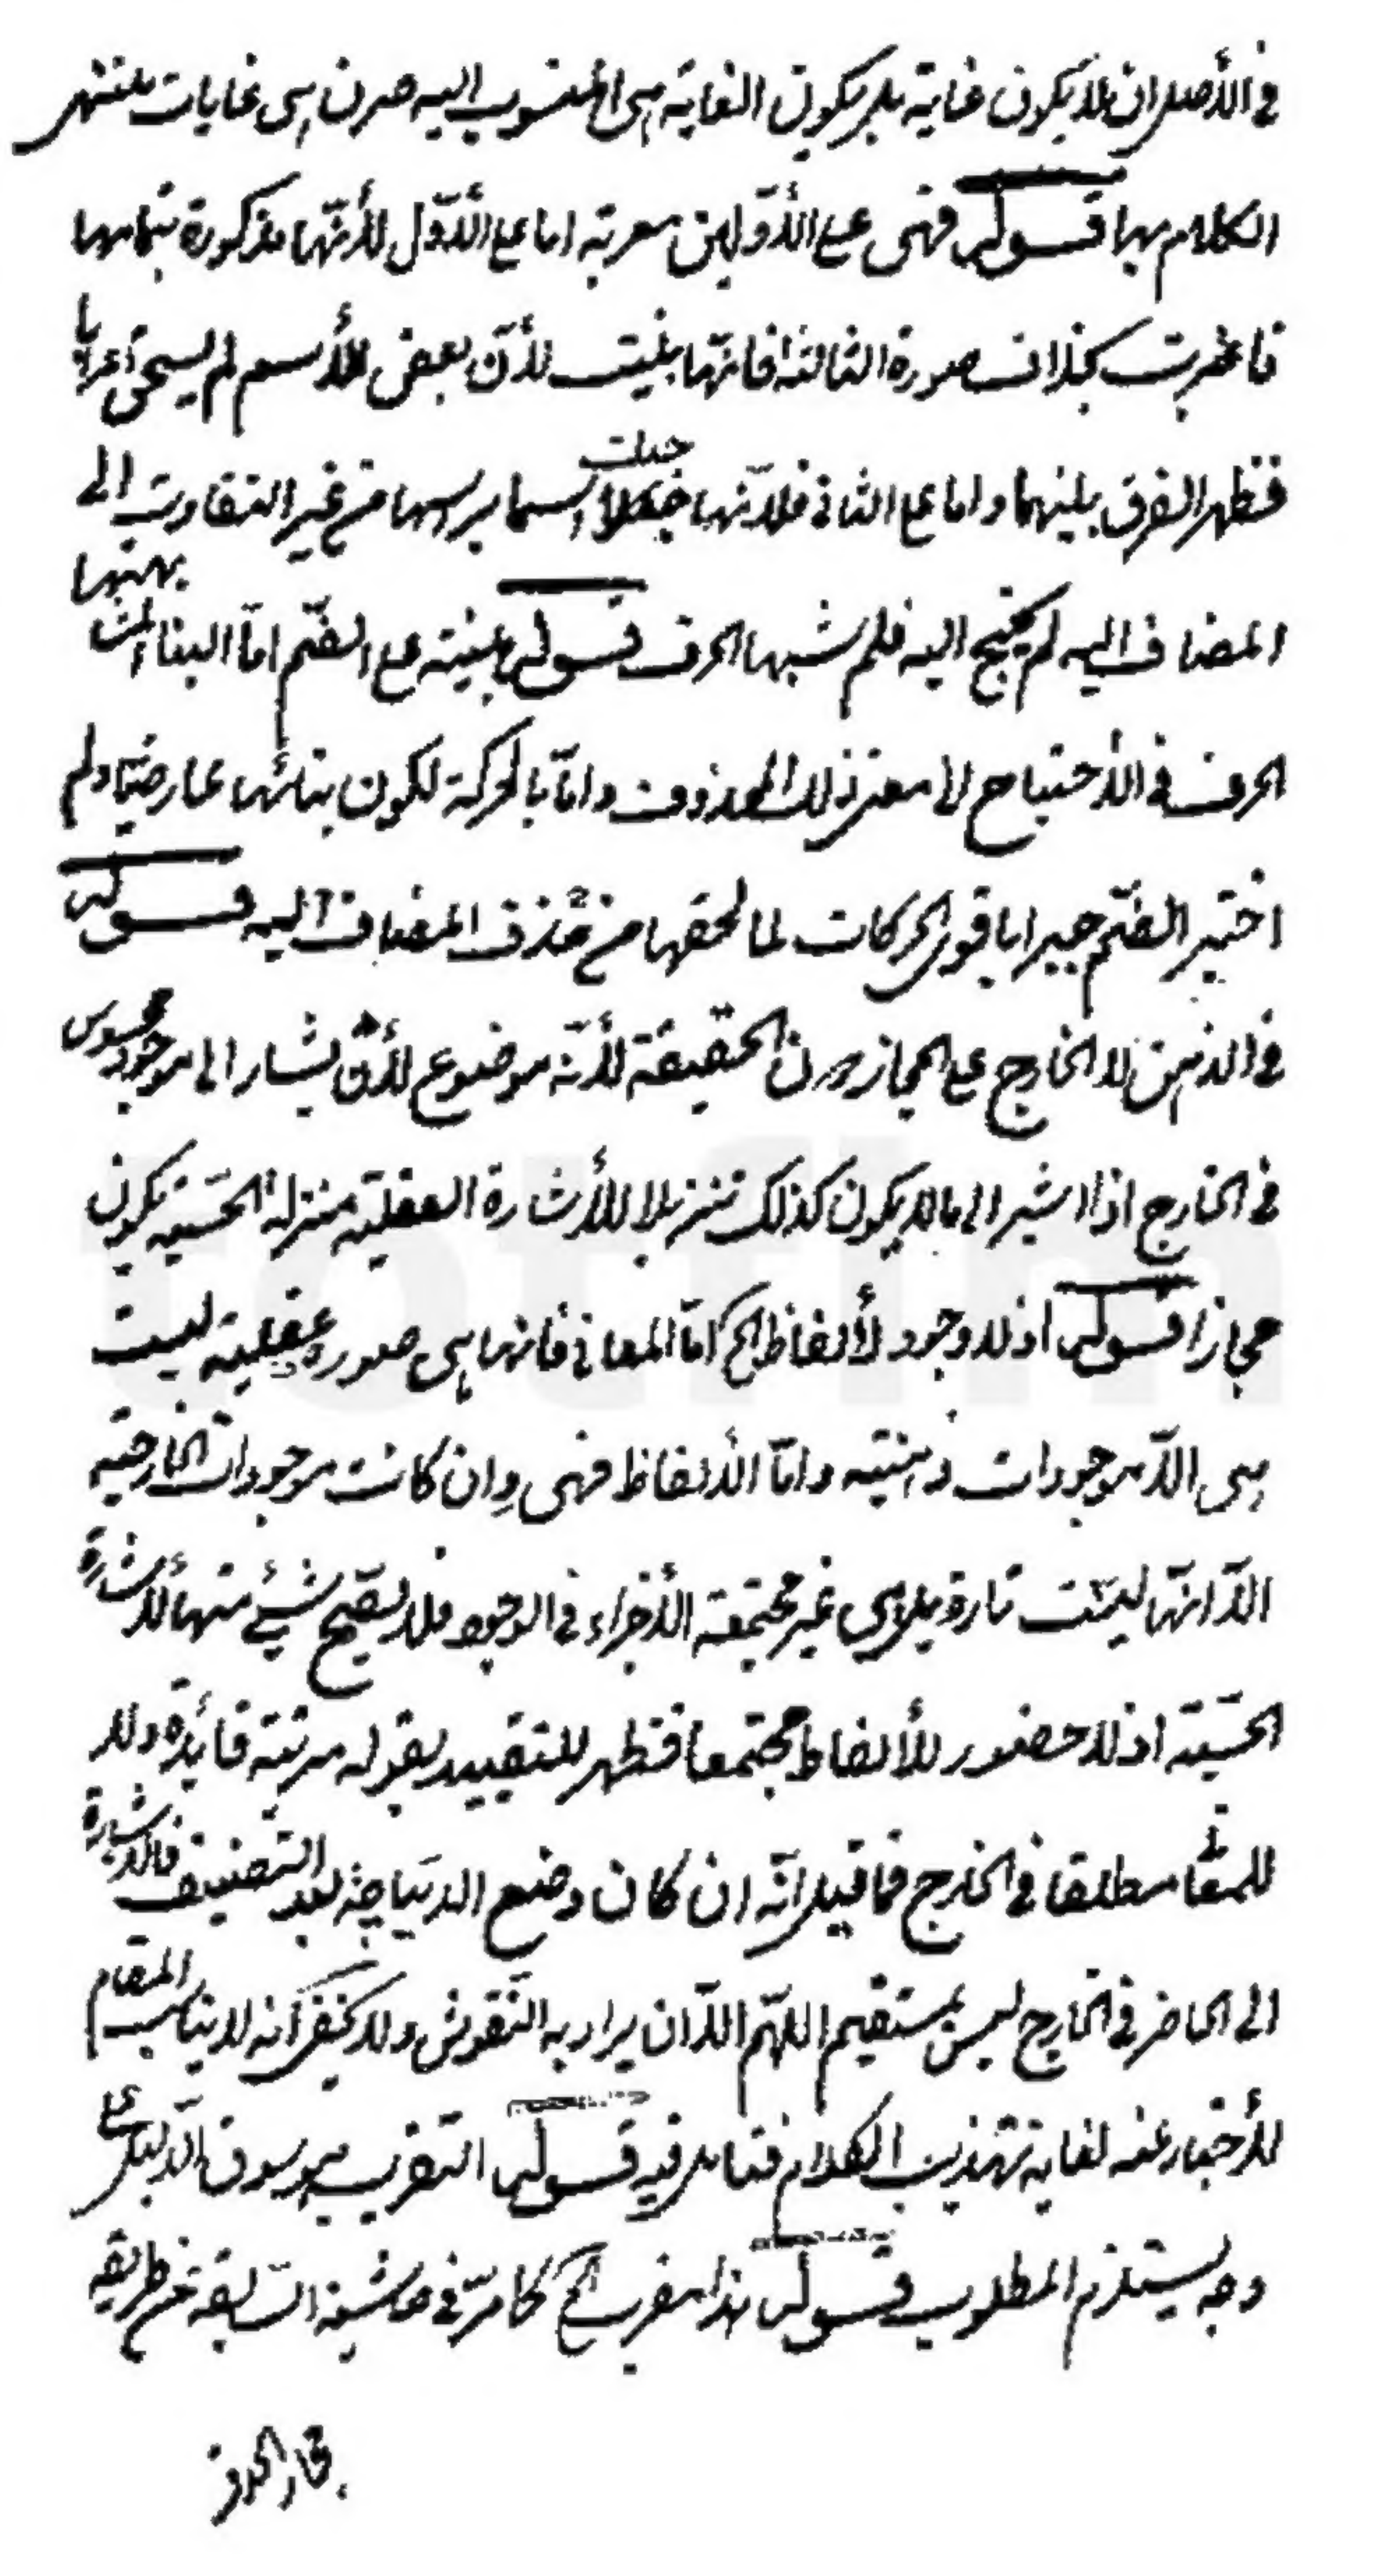 في الأصل ان لا يكون غاية بل يكون الغاية هي المنسوب اليه صرن هي غايات ينتهي
الكلام بها قوله فهي على الأولين معربة اما على الأول لأنها مذكورة بتمامها
فاعربت بخلاف صورة الثالثة فانها بنيت لأن بعض الأسم لم يستحق اعرابا
فظهر الفرق بينهما واما على الثاني فلانها جعلت اسما برأسها من غير التفاوت الى
المضاف اليه لم يحتج اليه فلم شبهها الحرف قوله مبنية على الضم اما البناء لمشابهتها
الحرف في الأحتياج الى معنى ذلك المحذوف واما بالحركة لكون بنائها عارضيا ولم
اختير الضم جبرا باقوى الحركات لما لحقها من حذف المضاف اليه قوله
في الذهن لا الخارج على المجاز دون الحقيقة لأنه موضوع لأن يشار الى موجود محسوس
في الخارج اذا اشير الى ما لا يكون كذلك تنزيلا للأشارة العقلية منزلة الحسية يكون
مجازا قوله اذ لا وجود لألفاظ الخ اما المعاني فانها هي صورة عقلية ليست
هي الا موجودات ذهنية واما الألفاظ فهي وان كانت موجودات الخارجية
الا انها ليست تارة بل هي غير مجتمعة الأجزاء في الوجود فلا يصح شيئ منها للأشارة
الحسية اذ لا حضور للألفاظ مجتمعا فظهر للتقييد بقوله مرتبة فائدة ولا
للمعا مطلقا في الخارج فما قيل انه ان كان وضع الديباجة بعد التصنيف فالأشارة
الى الحاضر في الخارج ليس بمستقيم اللهم الا ان يراد به النقوش ولا يخفى انه لا يناسب المقام
للأخبار عنه لغاية تهذيب الكلام فتامل فيه قوله التقريب هو سوق الدليل على
وجه يستلزم المطلوب قوله هذا مقرب الخ كما مر في حاشية السابقة من طريقة
مجاز الحذف